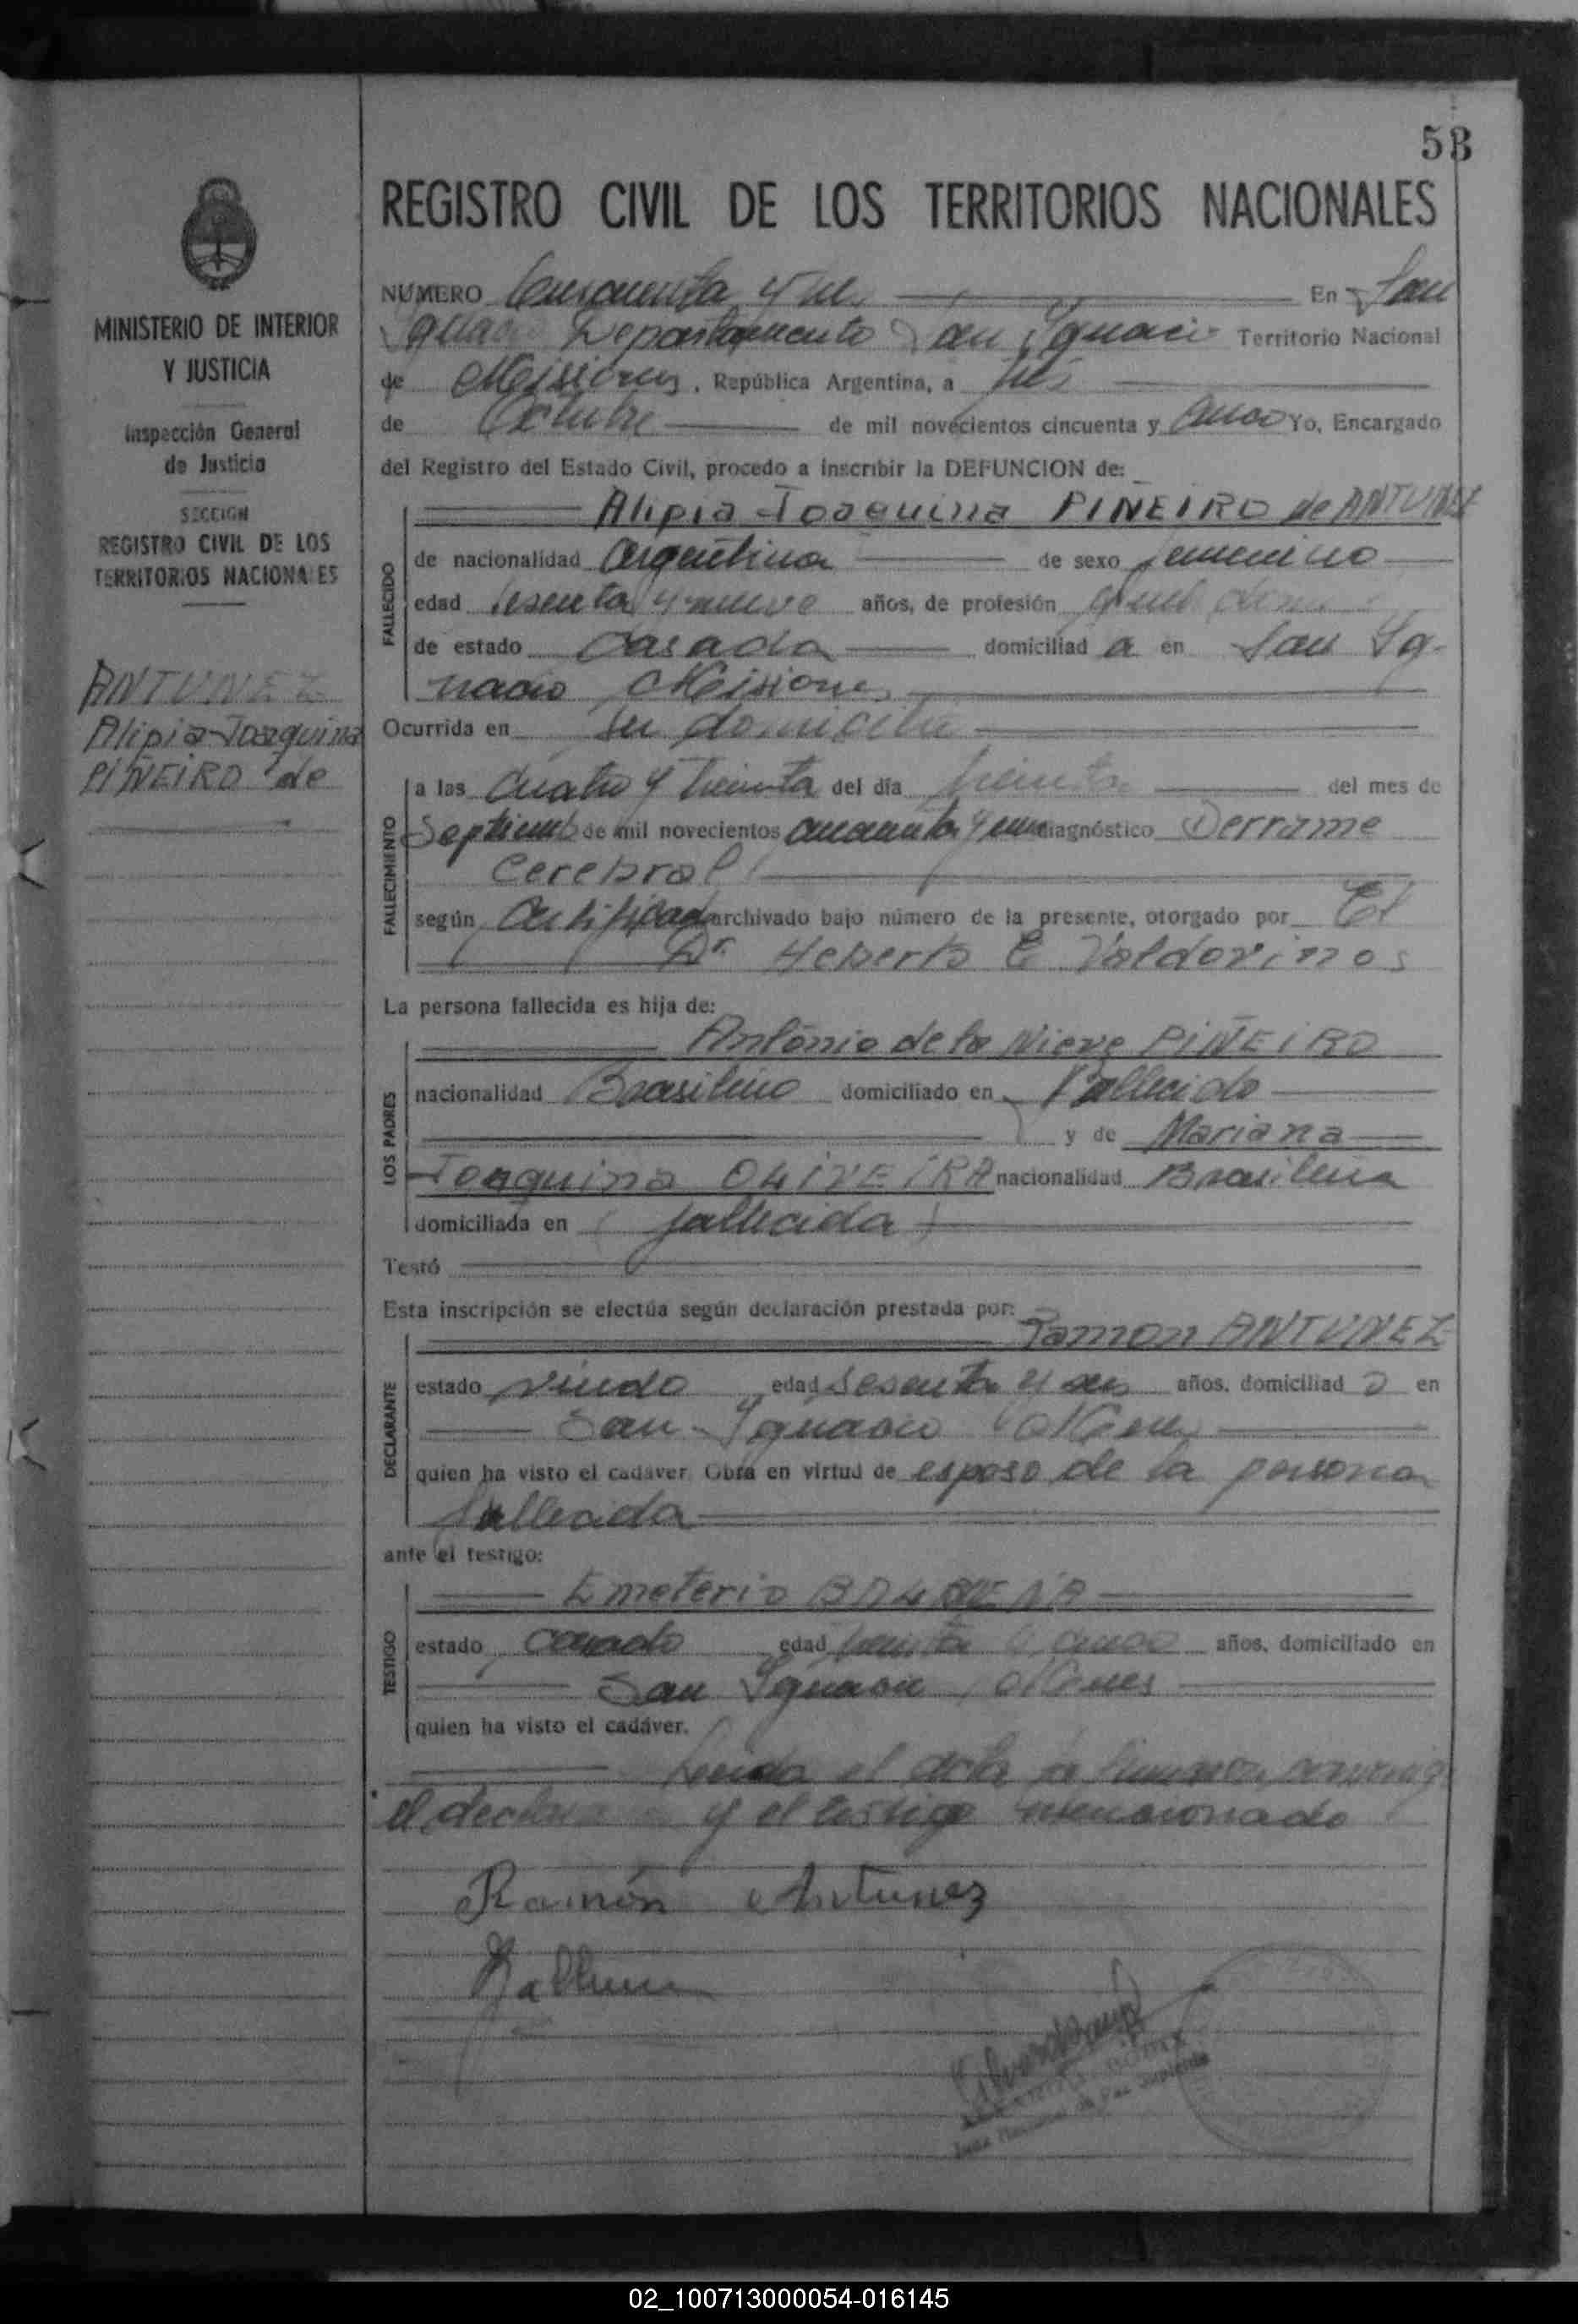 53
REGISTRO CIVIL DE LOS TERRITORIOS NACIONALES
MINISTERIO DE INTERIOR
Y JUSTICIA
Inspección General
de Justicia
SECCION
REGISTRO CIVIL DE LOS
TERRITORIOS NACIONALES
ANTUNEZ
Alipia Joaquina
PIÑEIRO de
NUMERO Cincuenta y tres En San
Ignacio Departamento San Ignacio Territorio Nacional
de Misiones, República Argentina, a tres
de Octubre de mil novecientos cincuenta y cinco Yo, Encargado
del Registro del Estado Civil, procedo a inscribir la DEFUNCION de:
Alipia Joaquina PINEIRO de ANTUNEZ
FALLECIDO
de nacionalidad Argentina de sexo femenino
edad sesenta y nueve años, de profesión
de estado Casada domiciliad a en San Ig-
nacio Misiones
Ocurrida en su domicilio
FALLECIMIENTO
a las Cuatro y treinta del día treinta del mes de
Septiemb de mil novecientos diagnóstico Derrame
Cerebral
según Certificado archivado bajo número de la presente, otorgado por El
Dr. Heberto E Valdovinos
La persona fallecida es hija de:
LOS PADRES
Antonio de la Nieve PIÑEIRO
nacionalidad Brasileño domiciliado en Fallecido
y de Mariana
Joaquina OLIVEIRA nacionalidad Brasileña
domiciliada en (fallecida)
Testó
Esta inscripción se efectúa según declaración prestada por:
Ramon ANTUNEZ
DECLARANTE
estado viudo edad sesenta y seis años, domiciliad o en
San Ignacio Mnes
quien ha visto el cadáver. Obra en virtud de esposo de la persona
fallecida
ante el testigo:
Emeterio BALBUENA
TESTIGO
estado casado edad treinta y cinco años, domiciliado en
San Ignacio Mnes
quien ha visto el cadáver.
Leida el acta la firmaron conmigo
el declarante y el testigo mencionado
Ramón Antunez
Juez Nacional de Paz Suplente
02_100713000054-016145